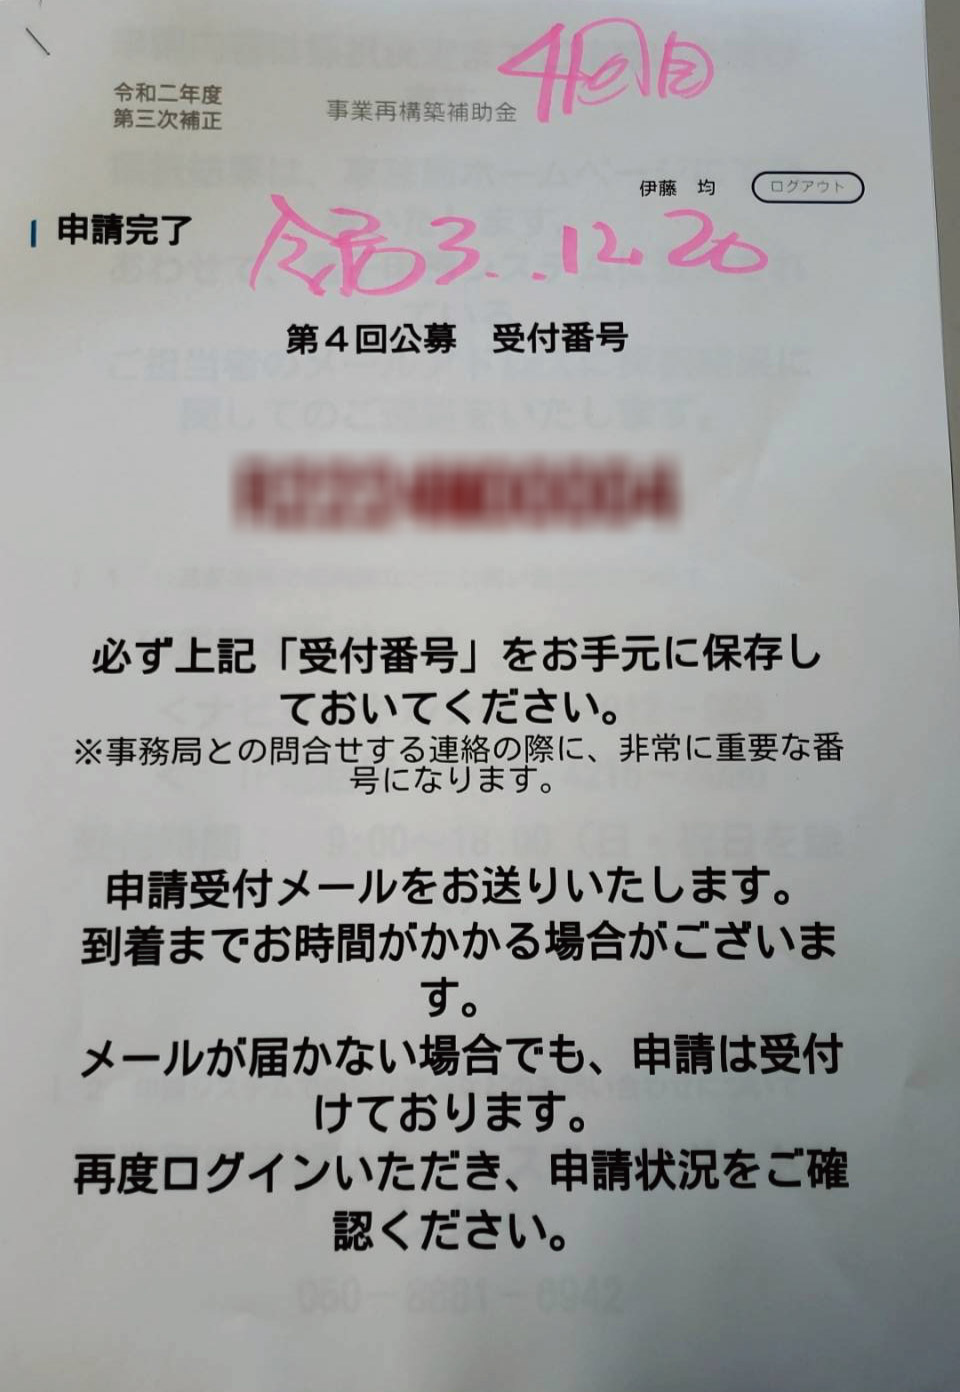 4回目
令和二年度
第三次補正
事業再構築補助金
伊藤 均
ログアウト
申請完了
令和3.12.20
第4回公募 受付番号
必ず上記「受付番号」をお手元に保存し
ておいてください。
※事務局との問合せする連絡の際に、非常に重要な番
号になります。
申請受付メールをお送りいたします。
到着までお時間がかかる場合がございま
す。
メールが届かない場合でも、申請は受付
けております。
再度ログインいただき、申請状況をご確
認ください。